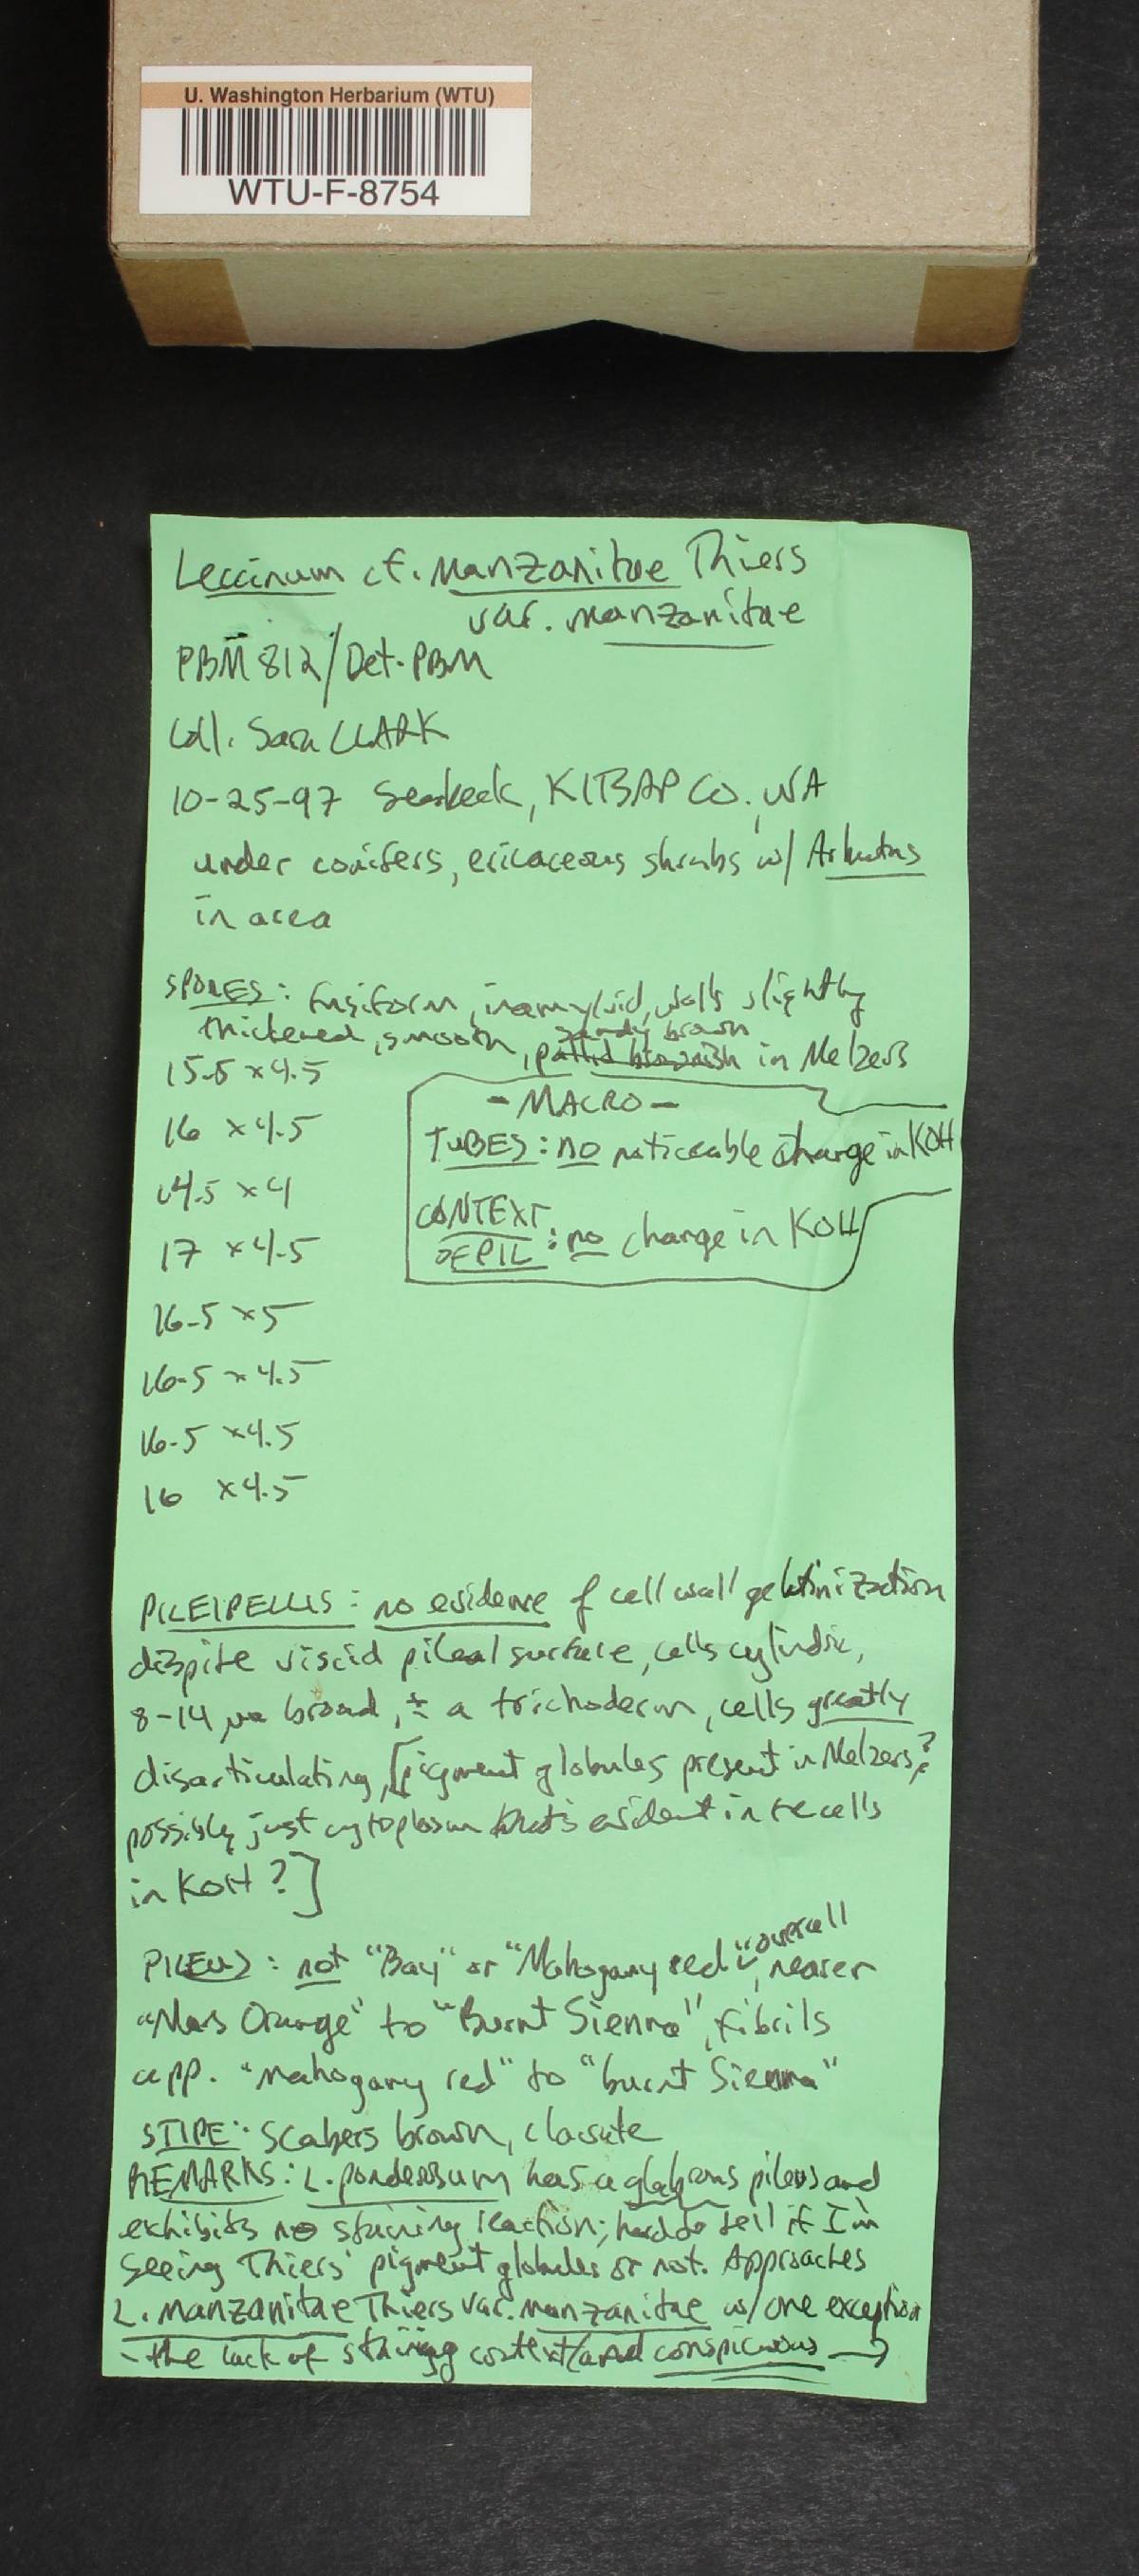 U. Washington Herbarium (WTU)
WTU-F-8754
Leccinum cf. manzanitae Thiers
var. manzanitae
PBM 812/Det. PBM
Coll. Sara CLARK
10-25-97 Seabeck, KITSAP CO., WA
under conifers, ericaceous shrubs w/ Arbutus
in area
SPORES: fusiform, inamyloid, walls slightly
thickened, smooth, sandy brown pallid brownish in Melzers
15.5 x 4.5
16 x 4.5
14.5 x 4
17 x 4.5
16.5 x 5
16.5 x 4.5
16.5 x 4.5
16 x 4.5
- MACRO -
TUBES: no noticeable change in KOH
CONTEXT
OF PIL: no change in KOH
PILEIPELLIS: no evidence of cell wall gelatinization
despite viscid pileal surface, cells cylindric,
8-14 µm broad, ± a trichoderm, cells greatly
disarticulating, [pigment globules present in Melzers?;
possibly just cytoplasm that's evident in the cells
in KOH?]
PILEUS: not "Bay" or "Mahogany red" overall, nearer
"Mars Orange" to "Burnt Sienna", fibrils
app. "mahogany red" to "burnt Sienna"
STIPE: scabers brown, clavate
REMARKS: L. ponderosum has a glabrous pileus and
exhibits no staining reaction; hard to tell if I'm
seeing Thiers' pigment globules or not. Approaches
L. manzanitae Thiers var. manzanitae w/ one exception
- the lack of staining context/and conspicuous →